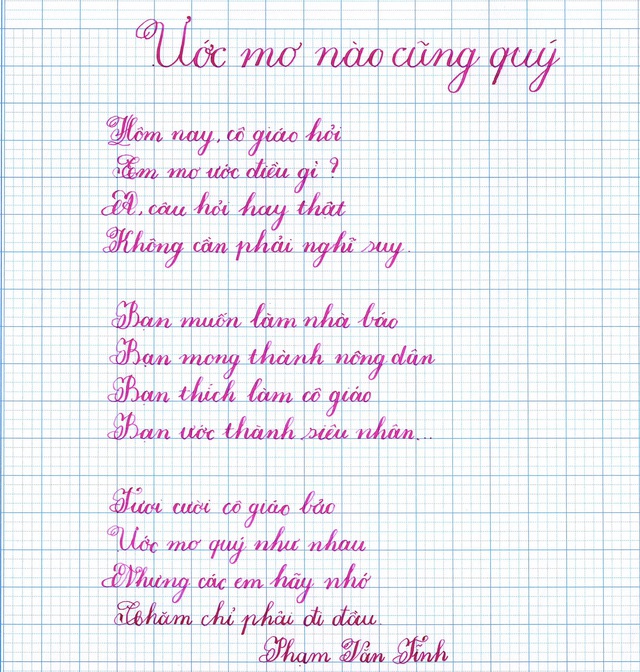 Ước mơ nào cũng quý
Hôm nay, cô giáo hỏi
Em mơ ước điều gì?
A, câu hỏi hay thật
Không cần phải nghĩ suy.
Bạn muốn làm nhà báo
Bạn mong thành nông dân
Bạn thích làm cô giáo
Bạn ước thành siêu nhân...
Tươi cười cô giáo bảo
Ước mơ quý như nhau
Nhưng các em hãy nhớ
Chăm chỉ phải đi đầu.
Phạm Văn Tĩnh